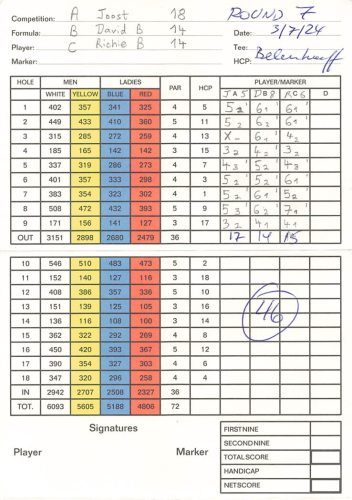 Competition: A Joost 18 ROUND 7
Formula: B David B 14 Date: 3/7/24
Player: C Richie B 14 Tee:
Marker: HCP:
HOLE MEN LADIES PAR HCP PLAYER/MARKER
WHITE YELLOW BLUE RED D
1 402 357 341 325 4 5 5 2 6 1 6 1
2 449 433 410 360 5 11 5 2 6 2 6 1
3 315 285 272 259 4 13 X - 6 1 4 2
4 185 165 142 142 3 15 3 2 4 2 3 2
5 337 319 286 273 4 7 4 3 5 2 4 3
6 401 357 333 298 4 3 5 2 5 2 6 1
7 383 354 323 302 4 1 5 2 6 1 5 2
8 508 472 432 393 5 9 5 3 6 2 7 1
9 171 156 141 127 3 17 3 2 4 1 4 1
OUT 3151 2898 2680 2479 36 17 14 15
10 546 510 483 473 5 2
11 152 140 127 116 3 18
12 408 386 357 336 5 10
13 151 139 125 105 3 16
14 136 116 108 100 3 14
15 362 322 292 269 4 8
16 450 420 393 367 5 12
17 390 354 327 303 4 6
18 347 320 296 258 4 4
IN 2942 2707 2508 2327 36
TOT. 6093 5605 5188 4806 72
46
Signatures
Player Marker
FIRSTNINE
SECONDNINE
TOTALSCORE
HANDICAP
NETSCORE